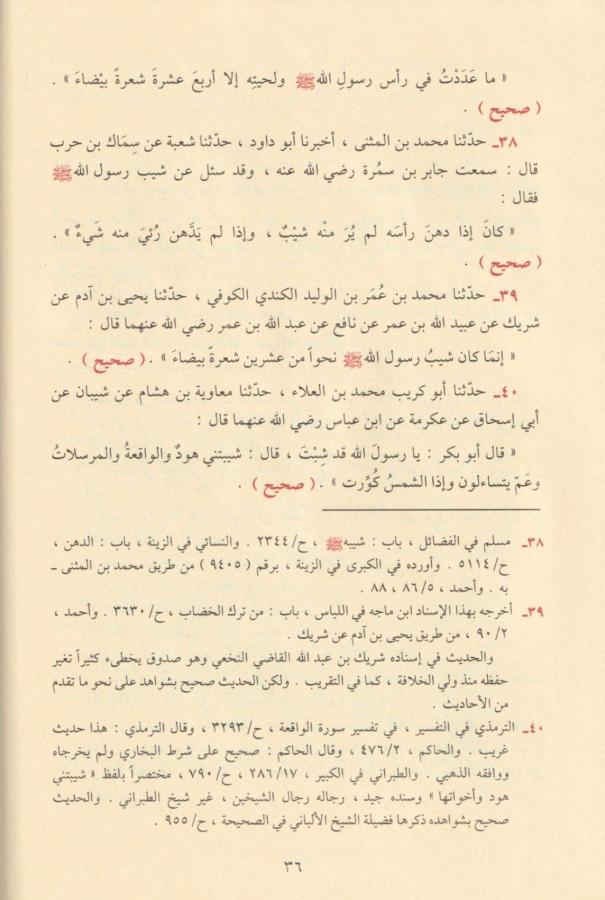 « ما عَدَدْتُ في رأس رسولِ الله ﷺ ولحيتِه إلا أربعَ عشرةَ شعرةً بيْضاءَ » .
( صحيح ) .
٣٨ـ حدّثنا محمد بن المثنى ، أخبرنا أبو داود ، حدّثنا شعبة عن سِمَاك بن حرب
قال : سمعت جابر بن سمُرة رضي الله عنه ، وقد سئل عن شيب رسول الله ﷺ
فقال :
« كانَ إذا دهنَ رأسَه لم يُرَ منْه شيْبٌ ، وإذا لم يَدَّهن رُئيَ منه شَيءٌ » .
( صحيح ) .
٣٩ـ حدّثنا محمد بن عُمَر بن الوليد الكندي الكوفي ، حدّثنا يحيى بن آدم عن
شريك عن عبيد الله بن عمر عن نافع عن عبد الله بن عمر رضي الله عنهما قال :
« إنمَا كان شيبُ رسول الله ﷺ نحواً من عشرين شعرةً بيضاءَ » . ( صحيح ) .
٤٠ـ حدّثنا أبو كريب محمد بن العلاء ، حدّثنا معاوية بن هشام عن شيبان عن
أبي إسحاق عن عكرمة عن ابن عباس رضي الله عنهما قال :
« قال أبو بكر : يا رسولَ الله قد شِبْتَ ، قال : شيبتني هودٌ والواقعةُ والمرسلاتُ
وعَمّ يتساءلون وإذا الشمسُ كُوِّرت » . ( صحيح ) .
٣٨ـ مسلم في الفضائل ، باب : شيبه ﷺ ، ح/٢٣٤٤ . والنسائي في الزينة ، باب : الدهن ،
ح/٥١١٤ . وأورده في الكبرى في الزينة ، برقم ( ٩٤٠٥ ) من طريق محمد بن المثنى ـ
به . وأحمد ، ٨٦/٥ ، ٨٨ .
٣٩ـ أخرجه بهذا الإسناد ابن ماجه في اللباس ، باب : من ترك الخضاب ، ح/٣٦٣٠ . وأحمد ،
٩٠/٢ ، من طريق يحيى بن آدم عن شريك .
والحديث في إسناده شريك بن عبد الله القاضي النخعي وهو صدوق يخطىء كثيراً تغير
حفظه منذ ولي الخلافة ، كما في التقريب . ولكن الحديث صحيح بشواهد على نحو ما تقدم
من الأحاديث .
٤٠ـ الترمذي في التفسير ، في تفسير سورة الواقعة ، ح/٣٢٩٣ ، وقال الترمذي : هذا حديث
غريب . والحاكم ، ٤٧٦/٢ ، وقال الحاكم : صحيح على شرط البخاري ولم يخرجاه
ووافقه الذهبي . والطبراني في الكبير ، ٢٨٦/١٧ ، ح/٧٩٠ ، مختصراً بلفظ « شيبتني
هود وأخواتها » وسنده جيد ، رجاله رجال الشيخين ، غير شيخ الطبراني . والحديث
صحيح بشواهده ذكرها فضيلة الشيخ الألباني في الصحيحة ، ح/٩٥٥ .
٣٦